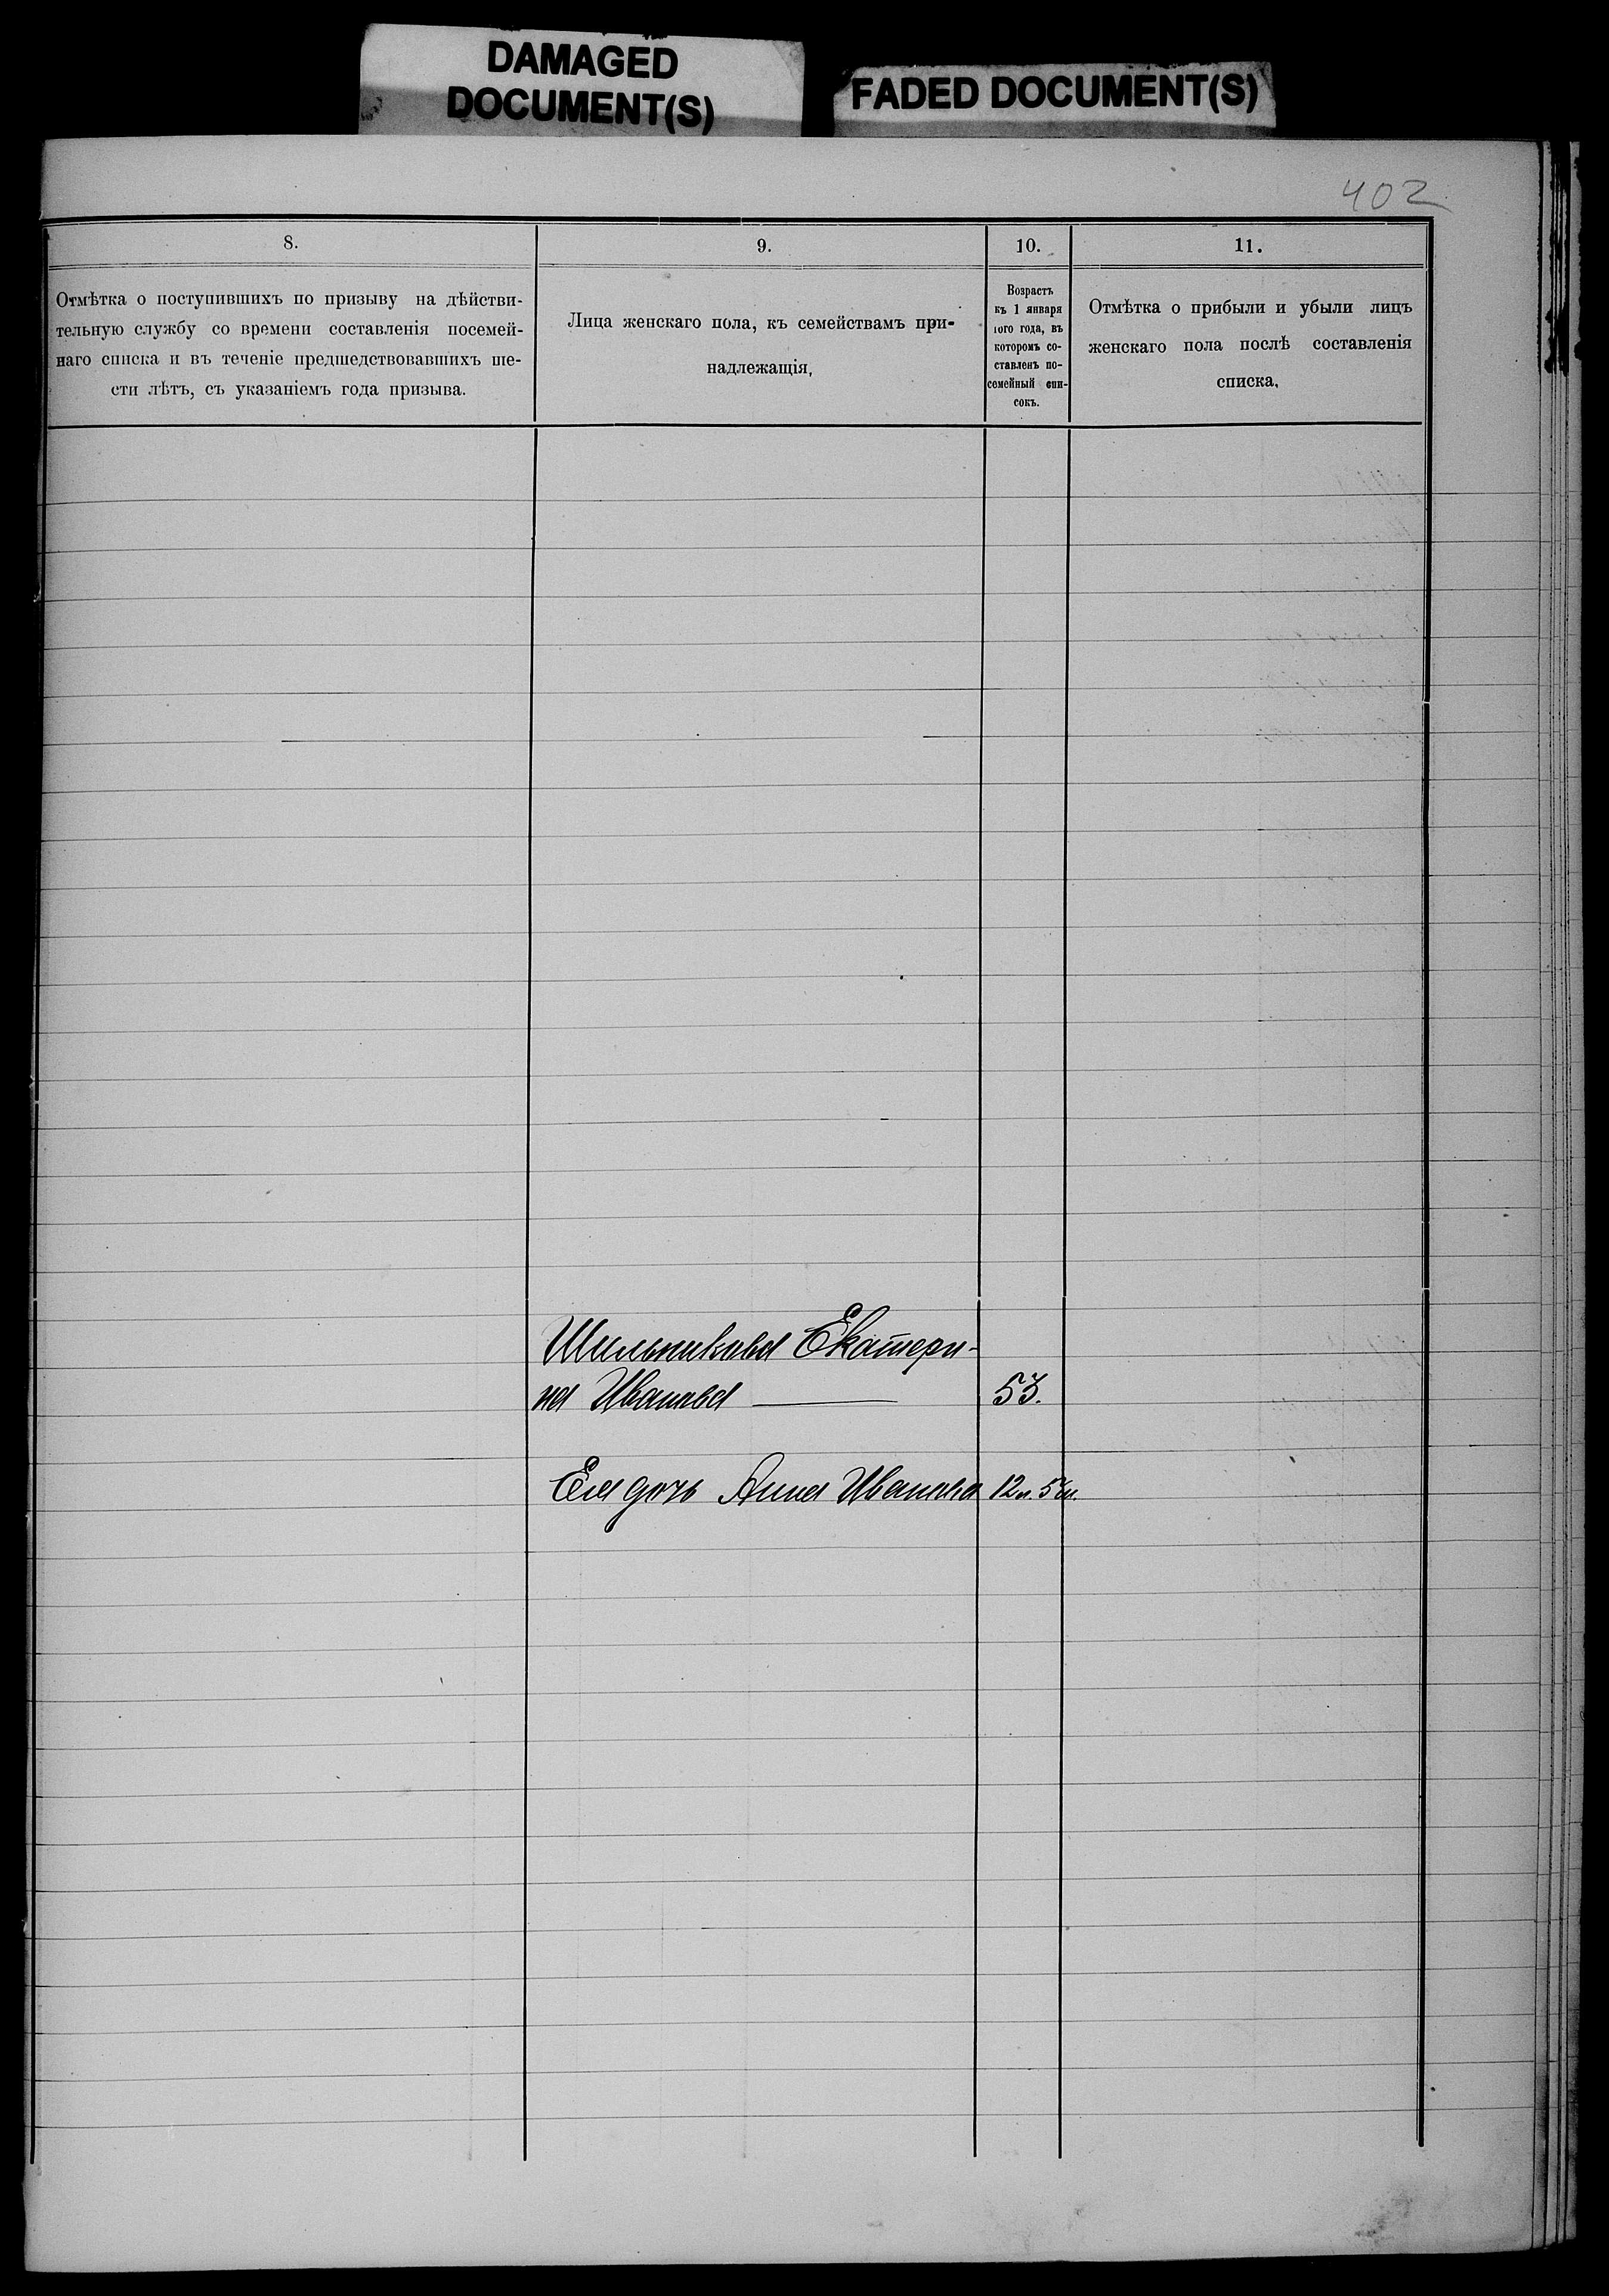 DAMAGED
DOCUMENT(S)
FADED DOCUMENT(S)
402
8.
9.
10.
11.
Отмѣтка о поступившихъ по призыву на дѣйстви-
тельную службу со времени составленія посемей-
наго списка и въ теченіе предшедствовавшихъ ше-
сти лѣтъ, съ указаніемъ года призыва.
Лица женскаго пола, къ семействамъ при-
надлежащія,
Возрастъ
къ 1 января
того года, въ
которомъ со-
ставленъ по-
семейный спи-
сокъ.
Отмѣтка о прибыли и убыли лицъ
женскаго пола послѣ составленія
списка.
Шильникова Екатери-
на Иванова 53.
Ея дочь Анна Иванова 12 л. 5 м.